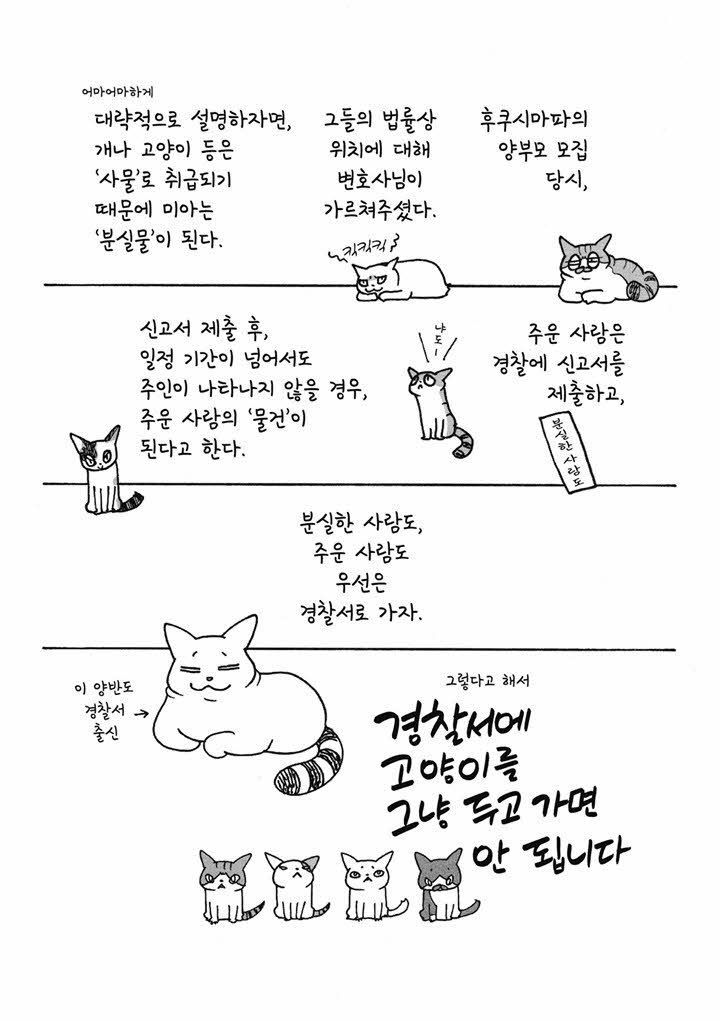 후쿠시마파의
양부모 모집
당시,
그들의 법률상
위치에 대해
변호사님이
가르쳐주셨다.
어마어마하게
대략적으로 설명하자면,
개나 고양이 등은
‘사물’로 취급되기
때문에 미아는
‘분실물’이 된다.
킥킥킥
주운 사람은
경찰에 신고서를
제출하고,
분실한 사람도
냐도ー
신고서 제출 후,
일정 기간이 넘어서도
주인이 나타나지 않을 경우,
주운 사람의 ‘물건’이
된다고 한다.
분실한 사람도,
주운 사람도
우선은
경찰서로 가자.
이 양반도
경찰서
출신
그렇다고 해서
경찰서에
고양이를
그냥 두고 가면
안 됩니다